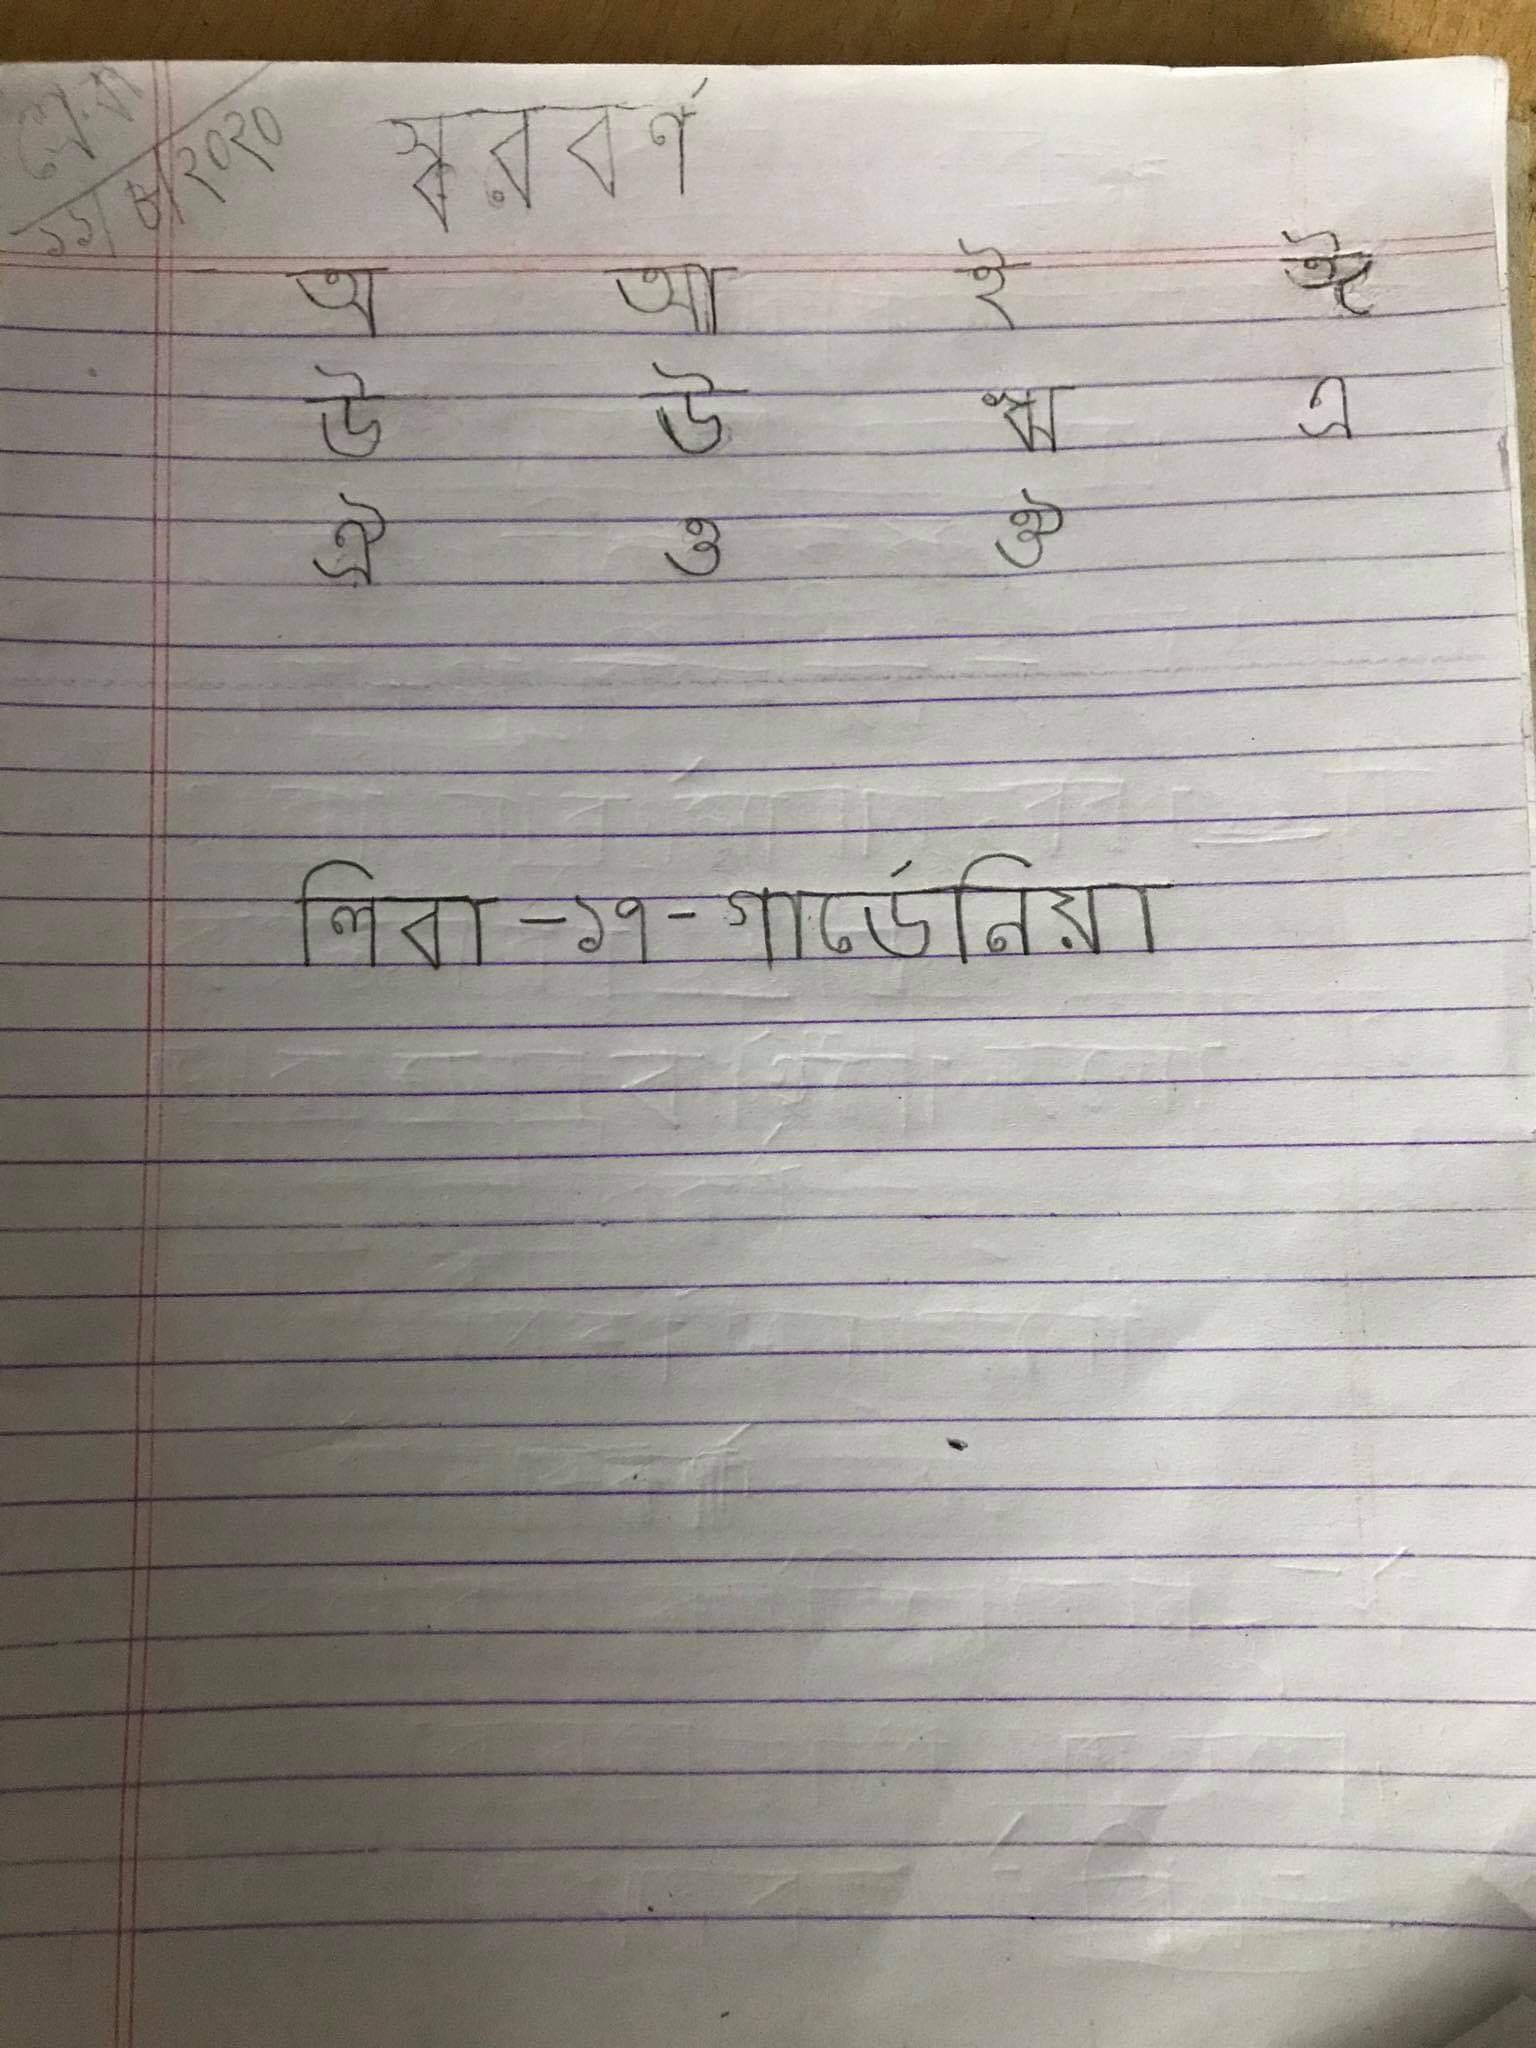 শ্রে.ক
১১/৩/২০২০
স্বরবর্ণ
অ আ ই ঈ
উ ঊ ঋ এ
ঐ ও ঔ
লিবা -১৭- গার্ডেনিয়া